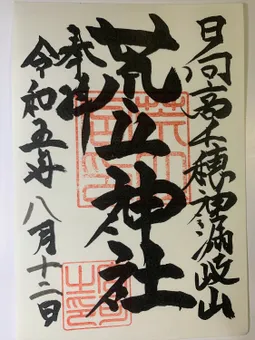 日向高千穂神漏岐山
荒立神社
奉拝
令和五年八月十二日